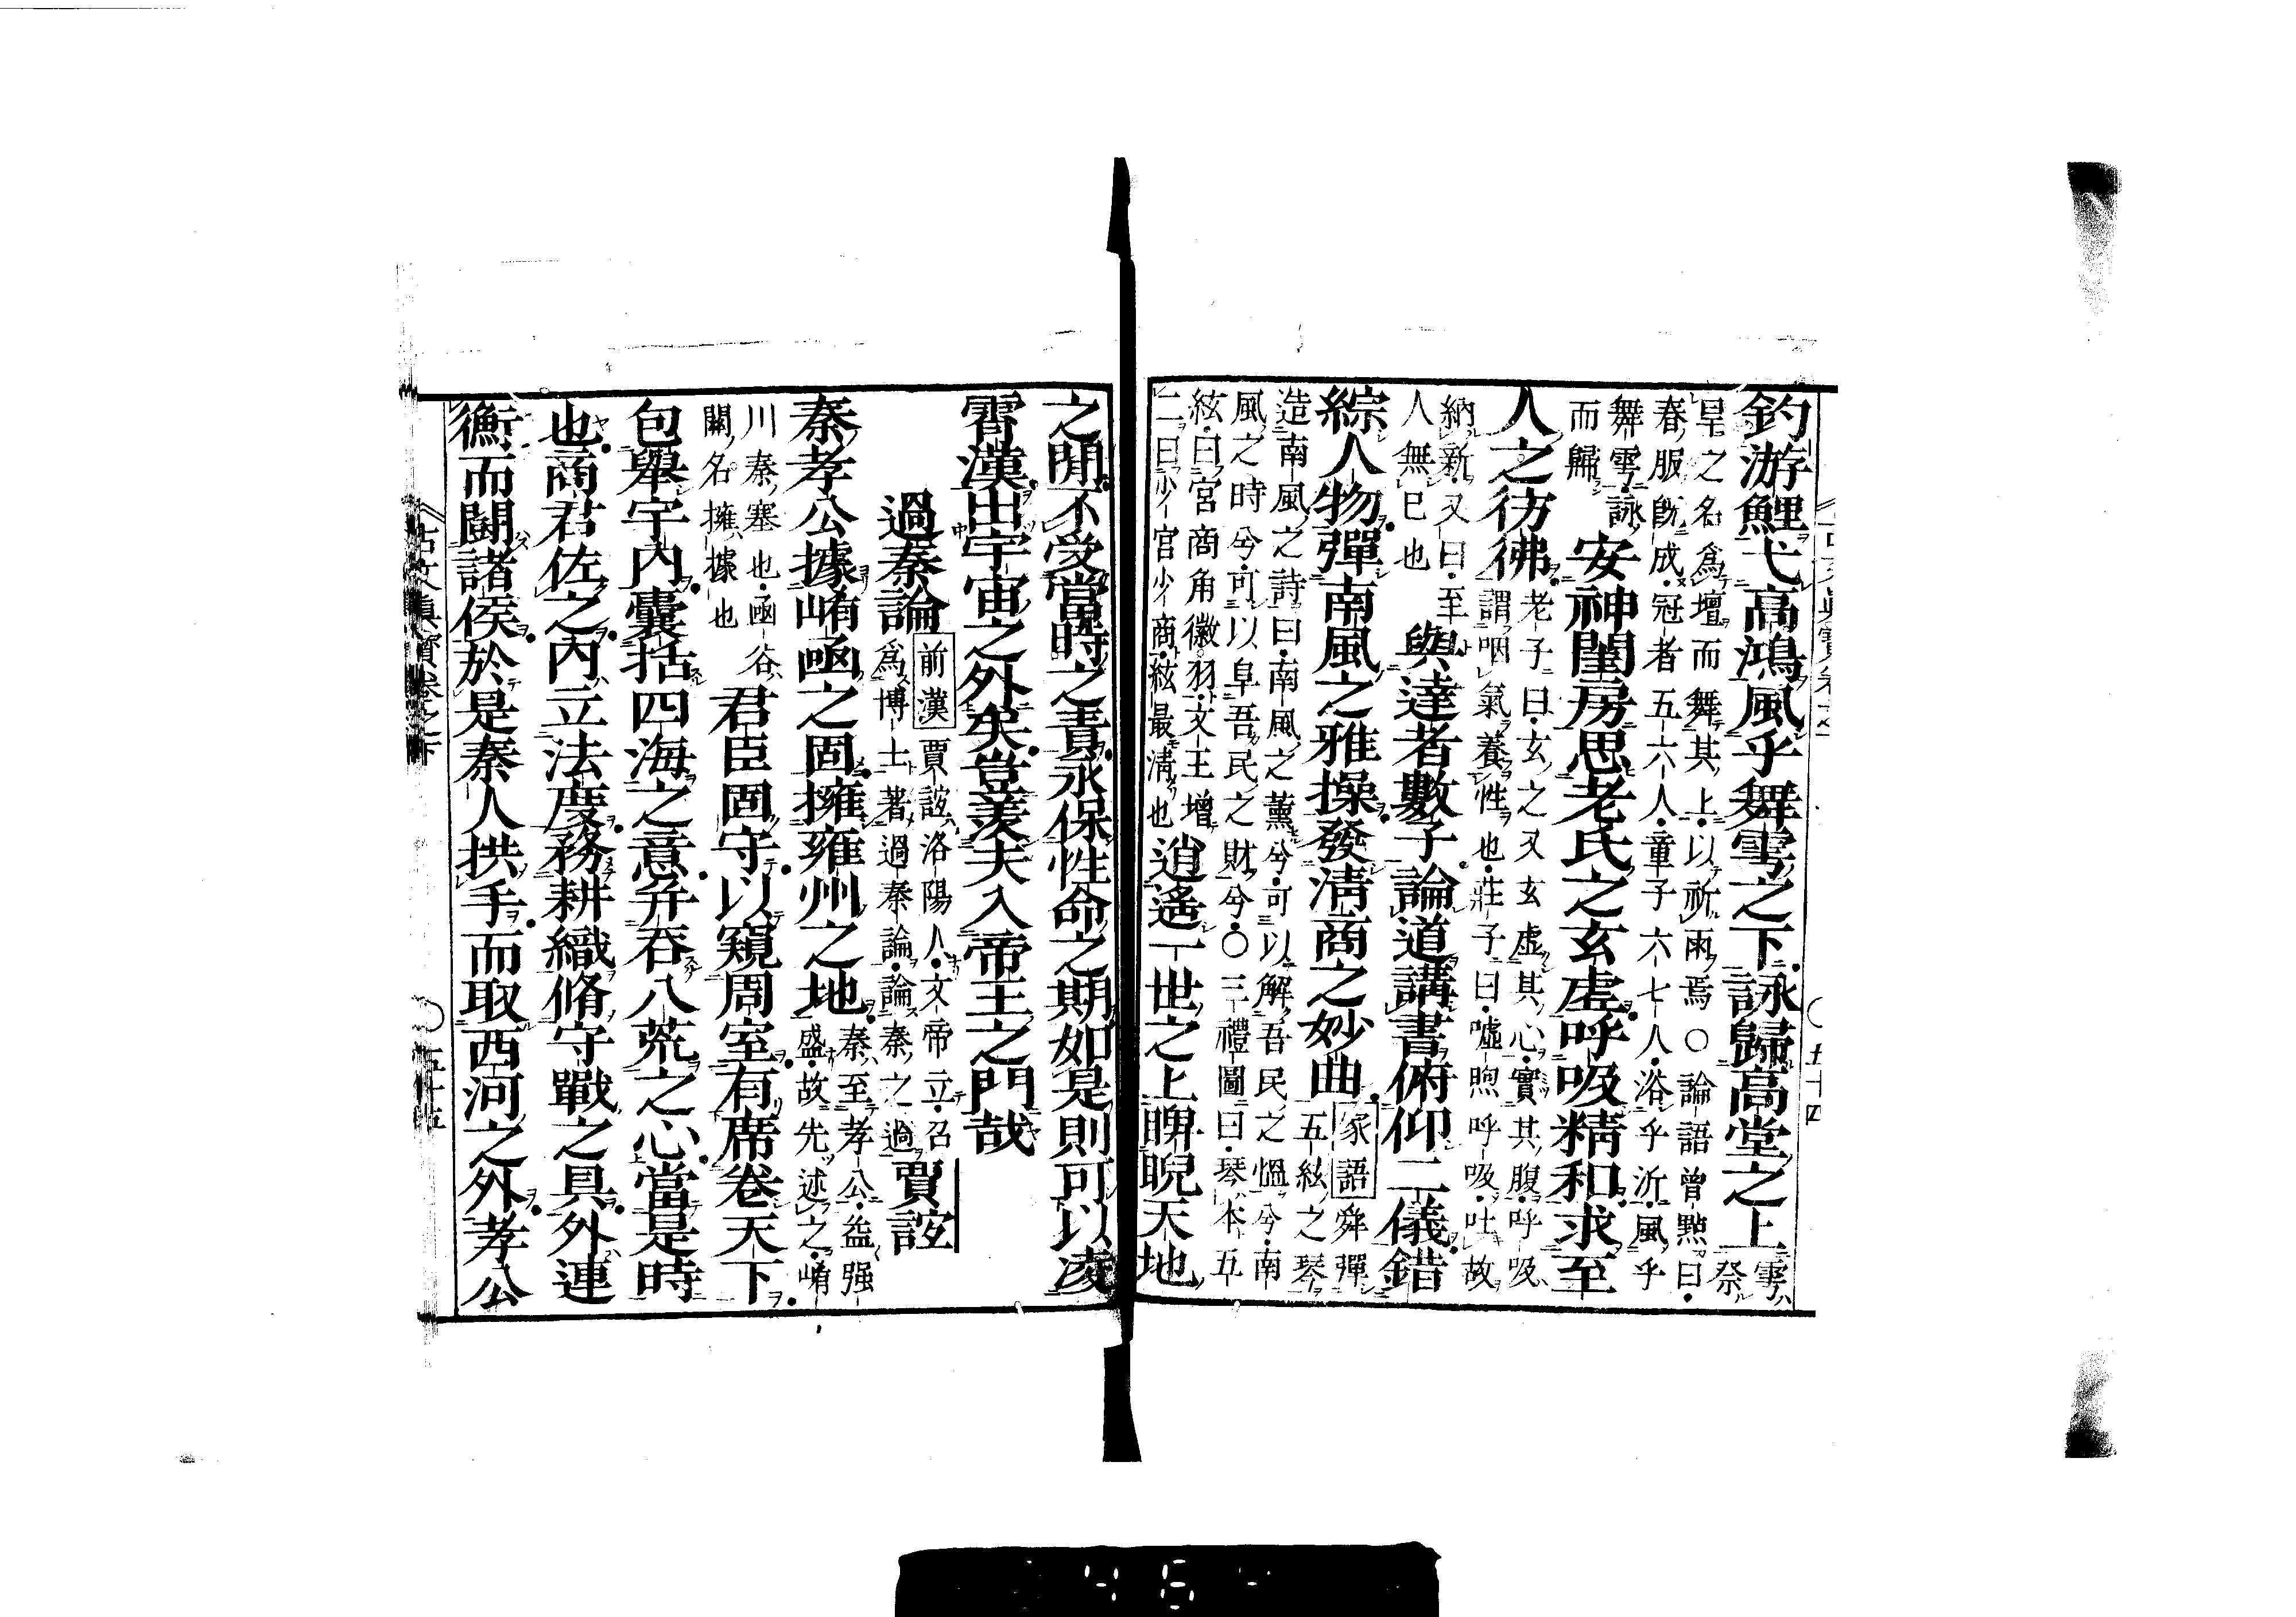 釣游鯉弋高鴻風乎舞雩之下詠歸高堂之上雩祭
旱之名爲壇而舞其上以祈雨焉○論語曾點曰
春服既成冠者五六人童子六七人浴乎沂風乎
舞雩詠
而歸
安神閨房思老氏之玄虛呼吸精和求至
人之彷彿
老子曰玄之又玄虛其心實其腹呼吸
謂咽氣養性也莊子曰噓呴呼吸吐故
納新又曰至
人無己也
與達者數子論道講書俯仰二儀錯
綜人物彈南風之雅操發清商之妙曲
家語舜彈
五絃之琴
造南風之詩曰南風之薰兮可以解吾民之慍兮南
風之時兮可以阜吾民之財兮○三禮圖曰琴本五
絃曰宮商角徵羽文王增
二曰少宮少商絃最清也
逍遙一世之上睥睨天地
之閒不受當時之責永保性命之期如是則可以凌
霄漢出宇宙之外矣豈羨夫入帝王之門哉
過秦論
前漢賈誼洛陽人文帝立召
爲博士著過秦論論秦之過
賈誼
秦孝公據崤函之固擁雍州之地
秦至孝公益强
盛故先述之崤
川秦塞也函谷
關名擁據也
君臣固守以窺周室有席卷天下
包舉宇內囊括四海之意并吞八荒之心當是時
也商君佐之內立法度務耕織脩守戰之具外連
衡而鬭諸侯於是秦人拱手而取西河之外孝公
古文眞寶卷之下
五十五